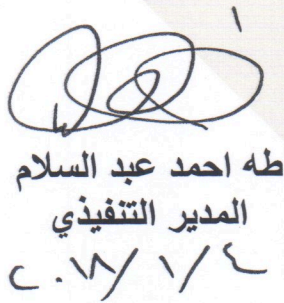 طه احمد عبد السلام
المدير التنفيذي
٢٠١٨/١/٤